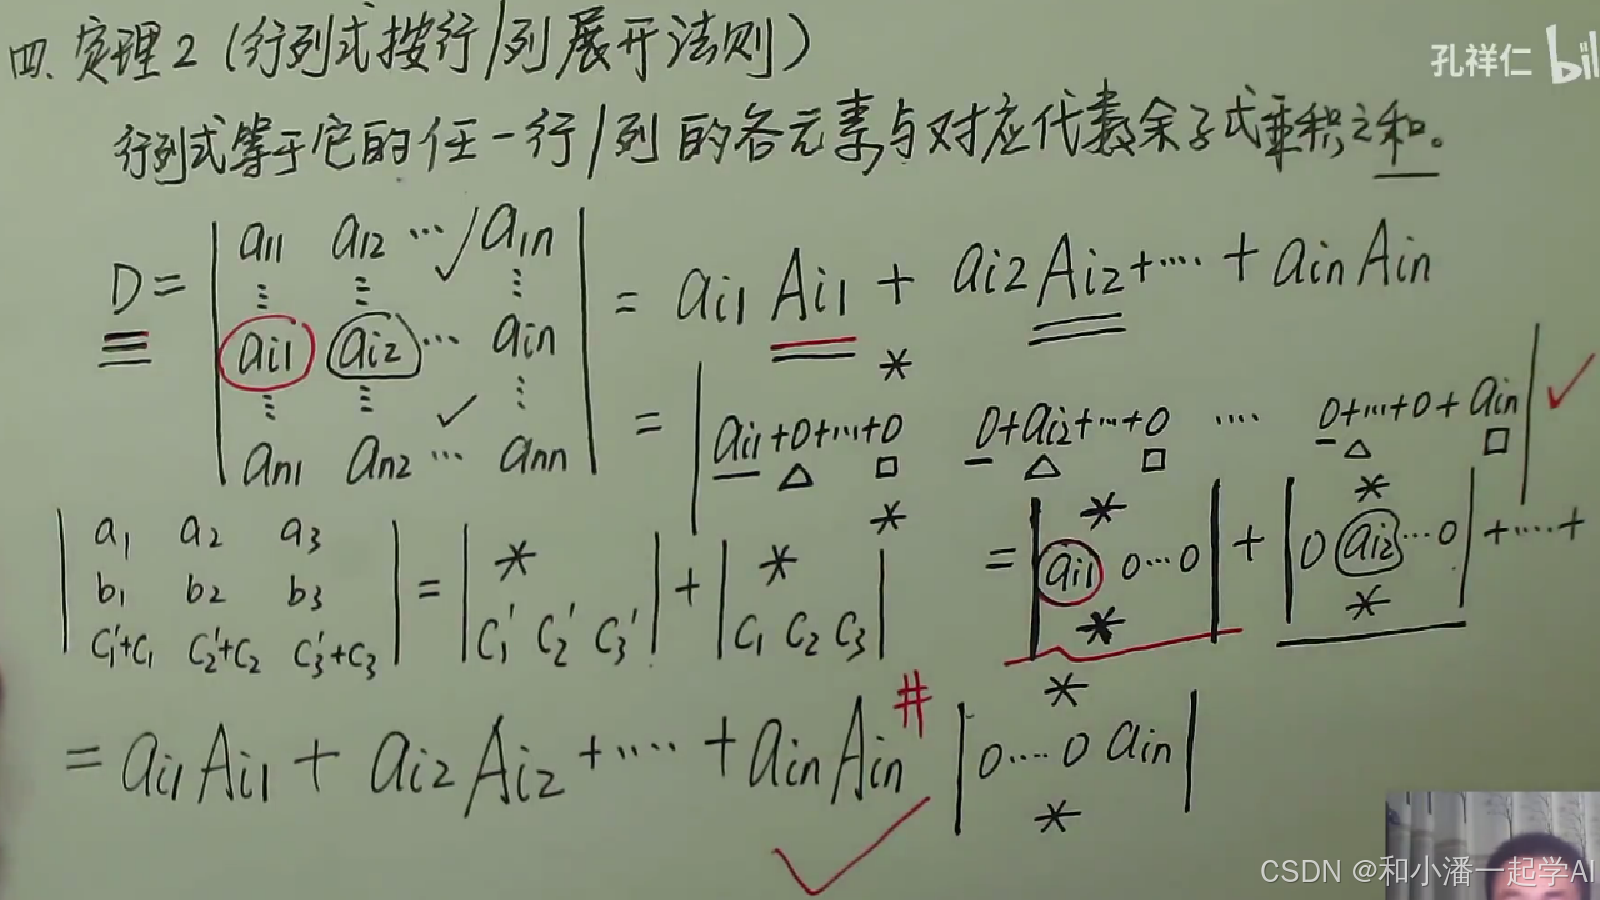 四、定理2(行列式按行/列展开法则)
孔祥仁 bil
行列式等于它的任一行/列的各元素与对应代数余子式乘积之和。
D = | a11 a12 … a1n |
| ⋮ ⋮ ⋮ |
| ai1 ai2 … ain | = ai1 Ai1 + ai2 Ai2 + … + ain Ain
| ⋮ ⋮ ⋮ |
| an1 an2 … ann |
*
= | ai1+0+…+0 0+ai2+…+0 … 0+…+0+ain |
*
| a1 a2 a3 |
| b1 b2 b3 |
| c1'+c1 c2'+c2 c3'+c3 |
= | * |
| c1' c2' c3' |
+ | * |
| c1 c2 c3 |
= | * |
| ai1 0…0 |
| * |
+ | * |
| 0 ai2 … 0 |
| * |
+ … +
| * |
| 0 … 0 ain |
| * |
= ai1 Ai1 + ai2 Ai2 + … + ain Ain #
CSDN @和小潘一起学AI